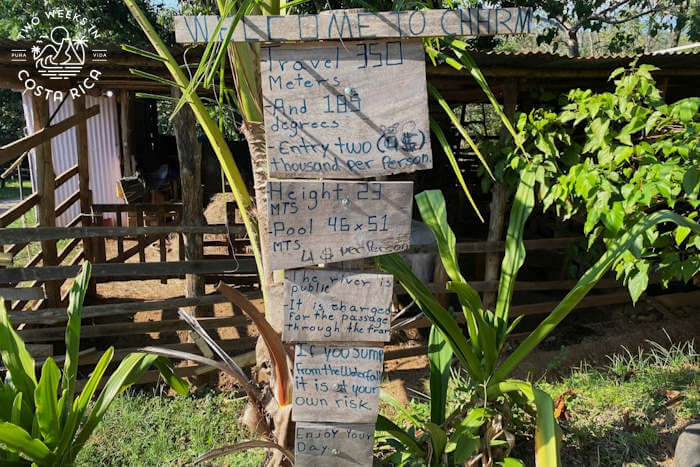 TWO WEEKS IN
PURA VIDA
COSTA RICA
WELCOME TO CHHRM
Travel 350
Meters
And 188
degrees
- Entry two (4$)
thousand per Person.
Height 23
MTS
-Pool 46x51
MTS
4$ per Person
-The river is
public
-It is charged
For the passage
through the fran
If you sump
From the Waterfall
it is at your
own risk.
Enjoy Your
Day